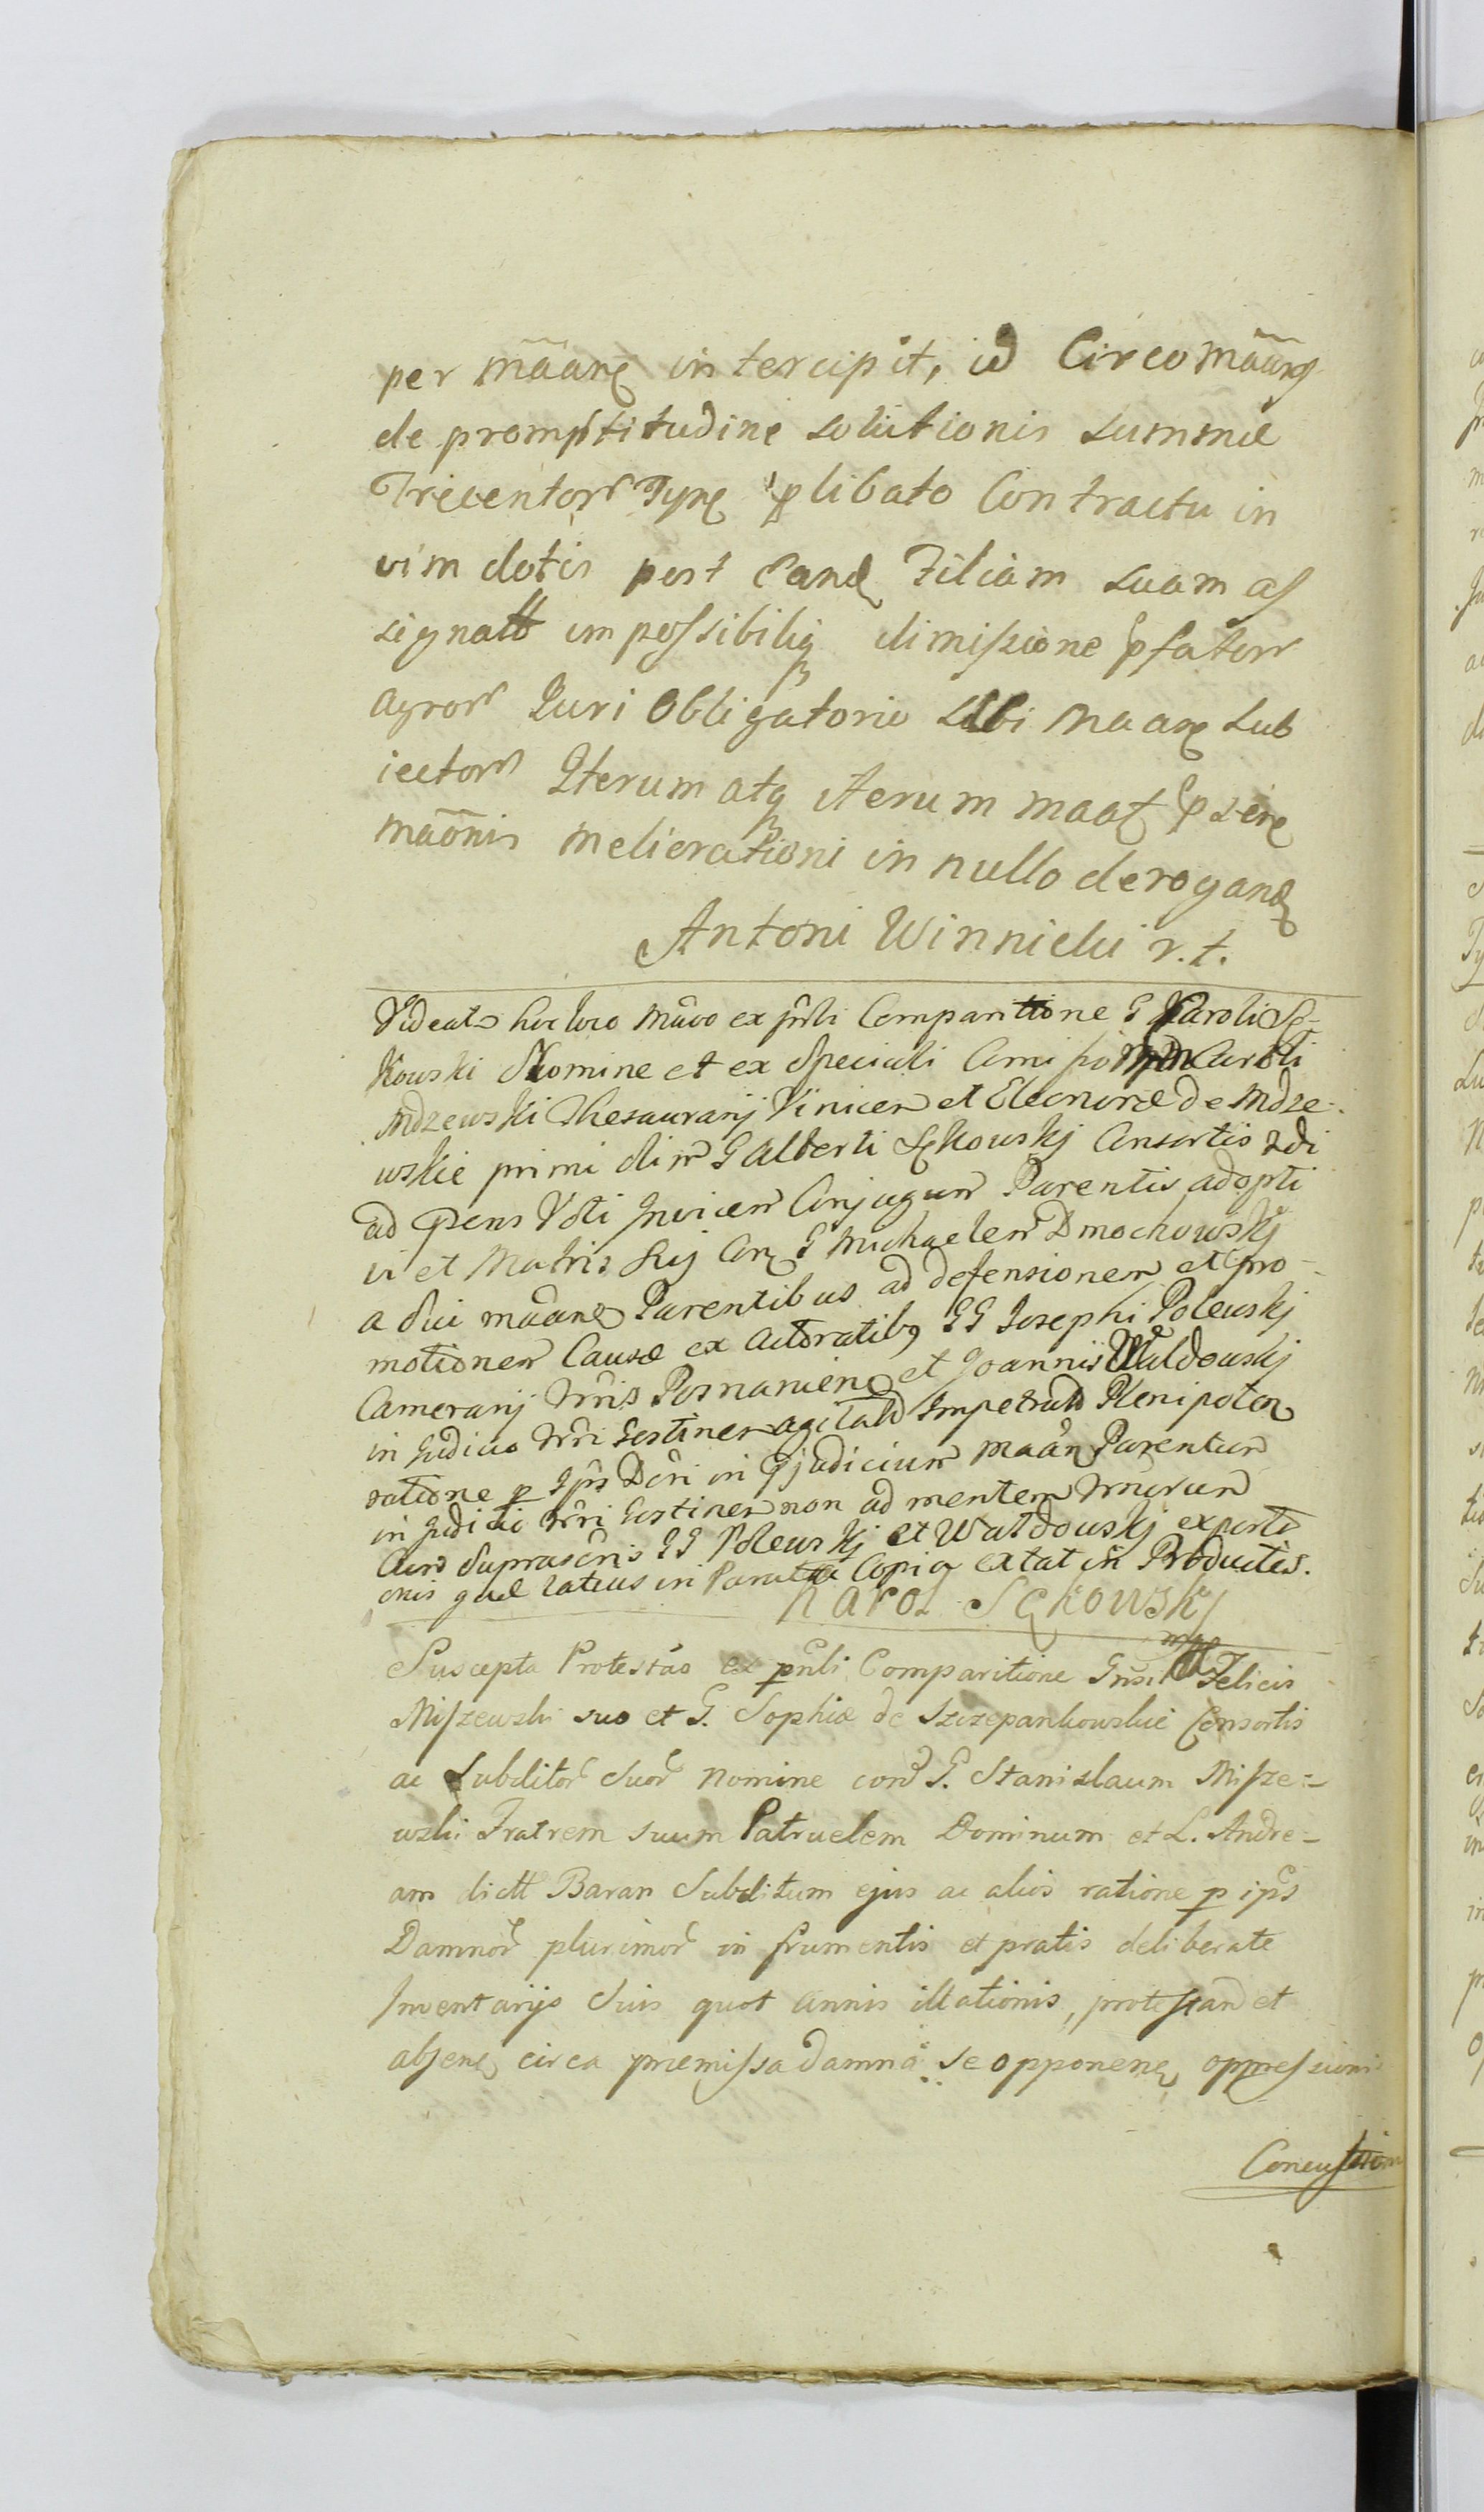 per mãane intercipit, id Circo mãane
de promptitudine solutionis summæ
Trecentorr Tyne plibato Contractu in
vim dotis post eand Filiam suam as
signatt impossibiliq dimissione pfatorr
agrorr Juri Obligatorio sibi maane sub
iectorr Iterum atq iterum maat psene
maõnis meliorationi in nullo derogand
Antoni Winnicki r.t.
Videat hoc loco mãvo ex pnli Comparittione G Karoli Sę-
kowski Nomine et ex Speciali Caroli
Mdzewski Thesaurarij Vinicen et Eleonoræ de Mdze-
wskie primi olim G Alberti Sękowskj Consortis 2di
ad psens Voti Invicem Conjugum Parentis adopti
vi et Matris Suj Con G Michaelem Dmochowskj
a dui mãane Parentibus ad defensionem et pro-
motionem Causæ ex actoratibq GG Josephi Polewskj
Camerarij Posnanien et Joannis Waldowskj
in Judicio Gostinen agitatt Impetratt Plenipoten
ratione p Ips Dni in pjudicium maan Parentum
in Judicio Gostinen non ad mentem
Cum Suprascris GG Polewskj et Waldowskj experti
onis quæ latius in Paratta Copia extat in Productis.
Karol Sękowskj
mp
Suscepta Protestão ex pnli Comparitione Gnsi Felicis
Miszewski suo et G. Sophiæ de Szczepankowskie Consortis
ac Subditorr Suorr nomine con G. Stanislaum Misze-
wski Fratrem suum Patruelem Dominum et L. Andre-
am dictt Baran Subditum ejus ac alios ratione p ips
Damnorr plurimorr in frumentis et pratis deliberate
Inventarijs Suis quot annis illationis, protestand et
absene circa præmissa damna se opponene oppressioni
Concussion